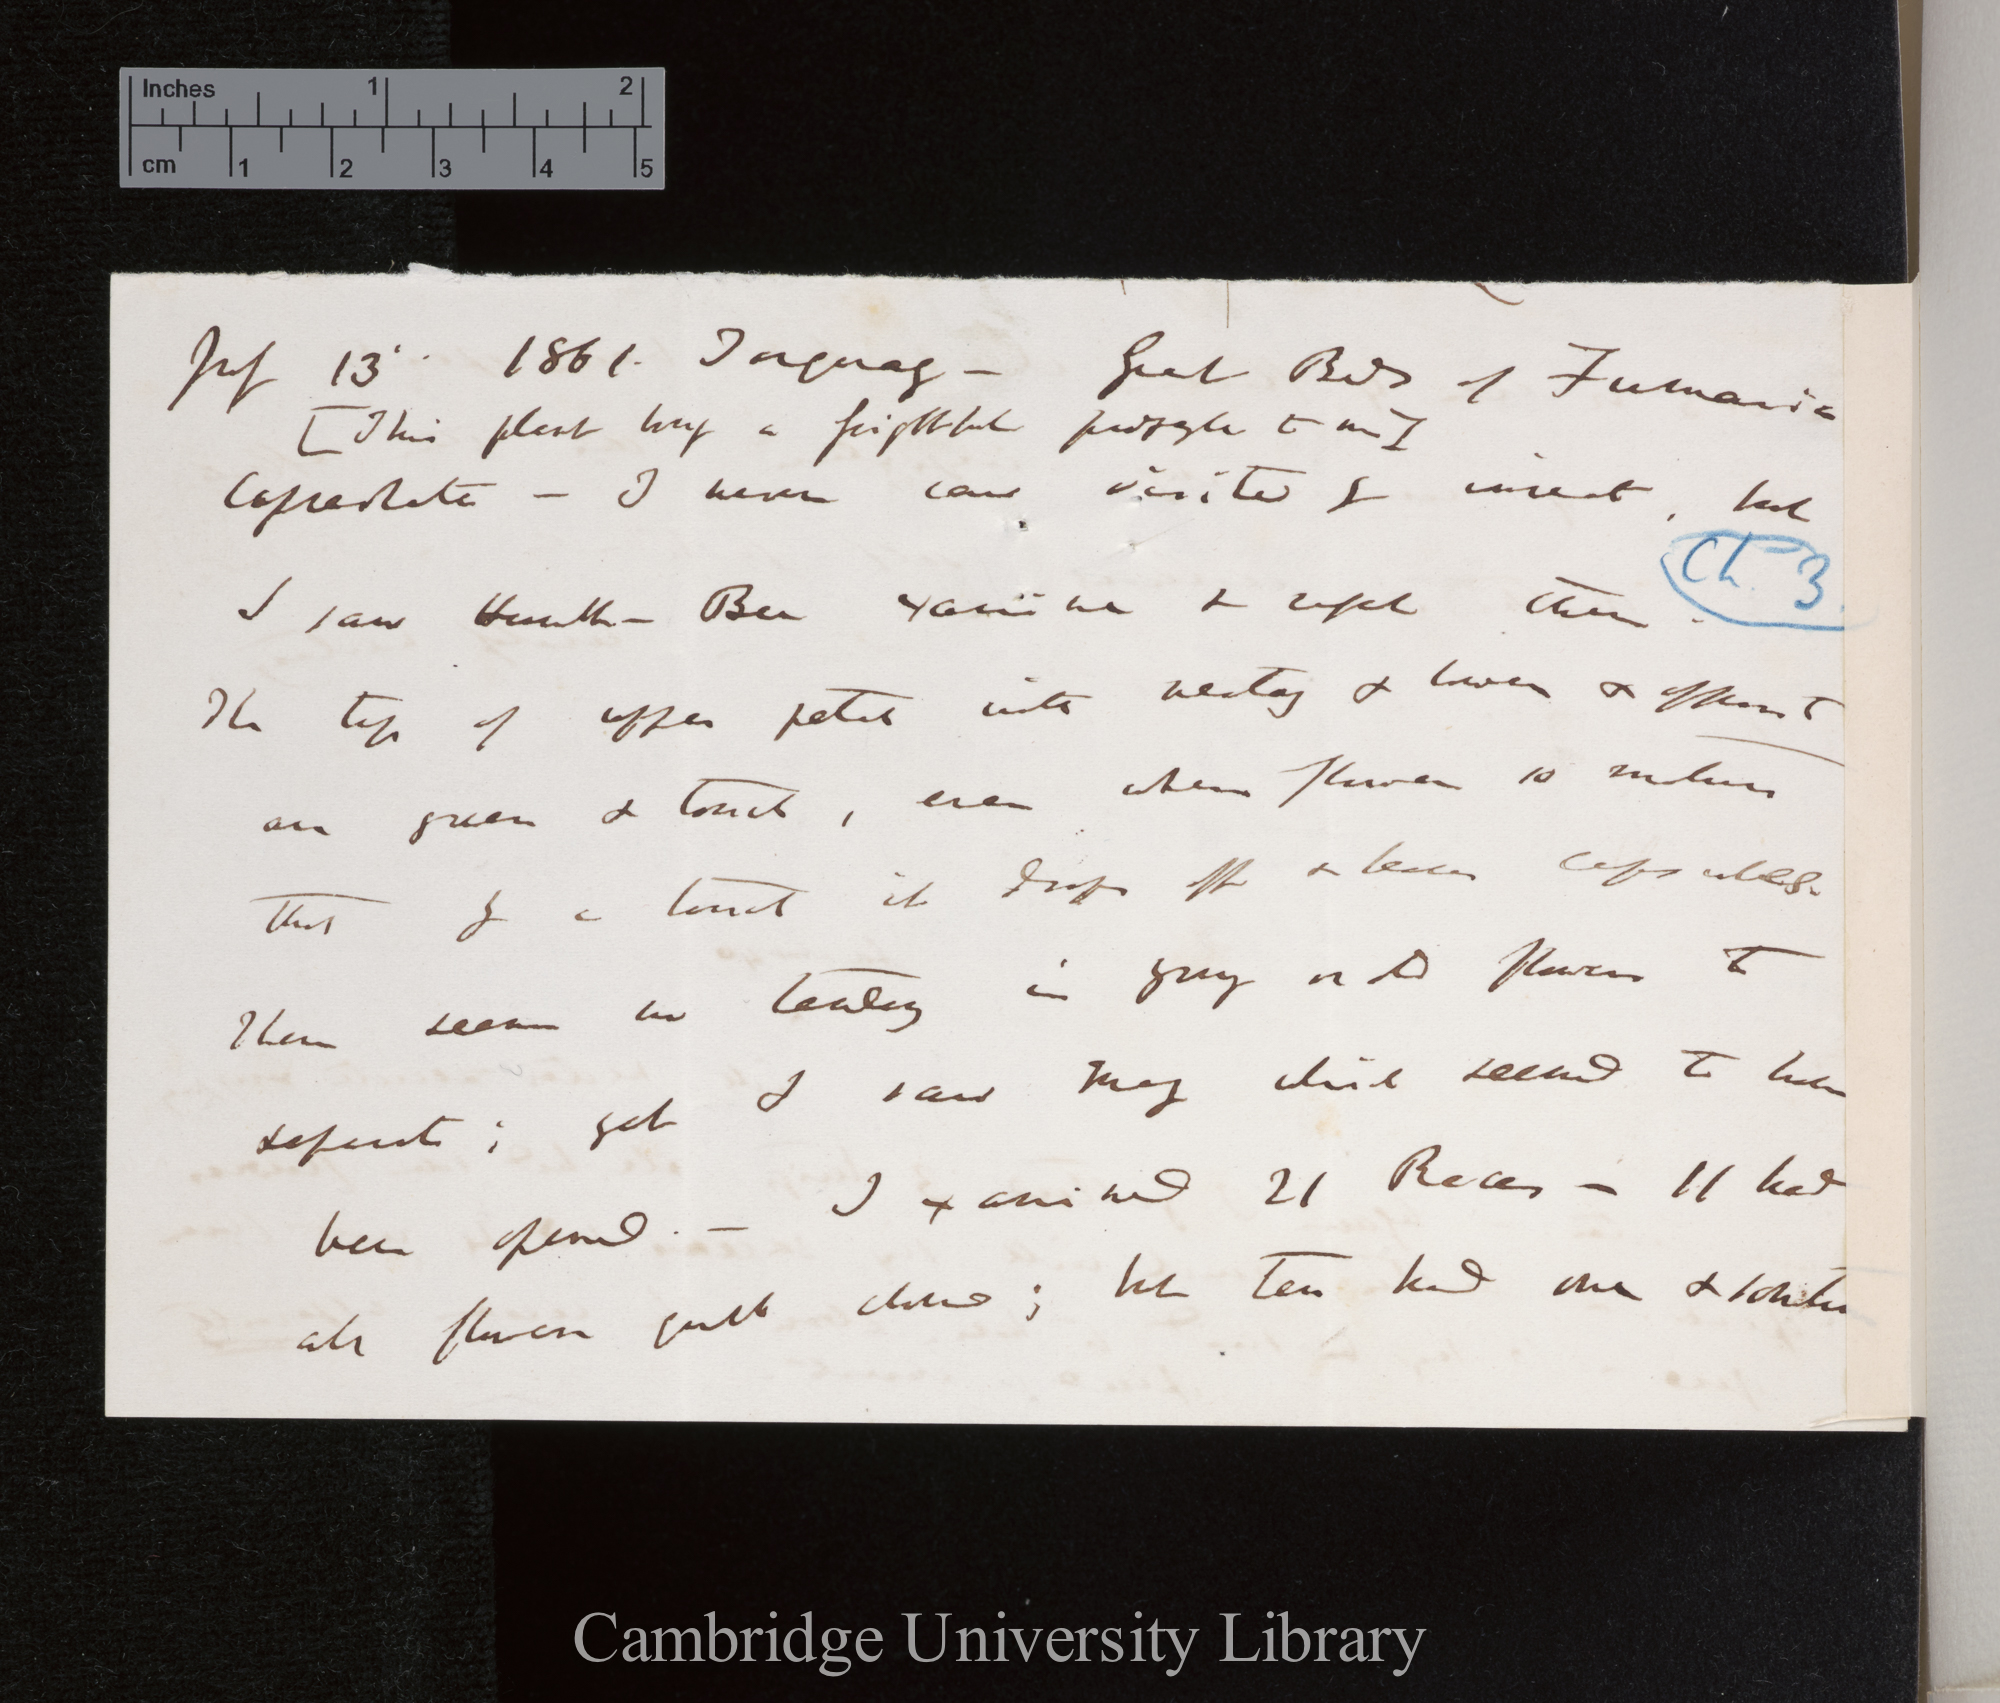 Inches 1 2
cm 1 2 3 4 5
July 13 1861. Torquay — Great Beds of Fumaria
[This plant long a frightful puzzle to me]
Capreolata — I never saw visited by insect, but
Ch. 3
I saw Humble-Bee examine & reject them.
The tips of upper petal with nectary & lower & opposite
are green & touch, even when flower is mature
that by a touch it drops off & leaves capsules.
There seems no tendency in young or old flowers to
separate; yet I saw many which seemed to have
been opened. — I examined 21 Races — 11 had
all flowers quite closed; but Ten had one & sometimes
Cambridge University Library